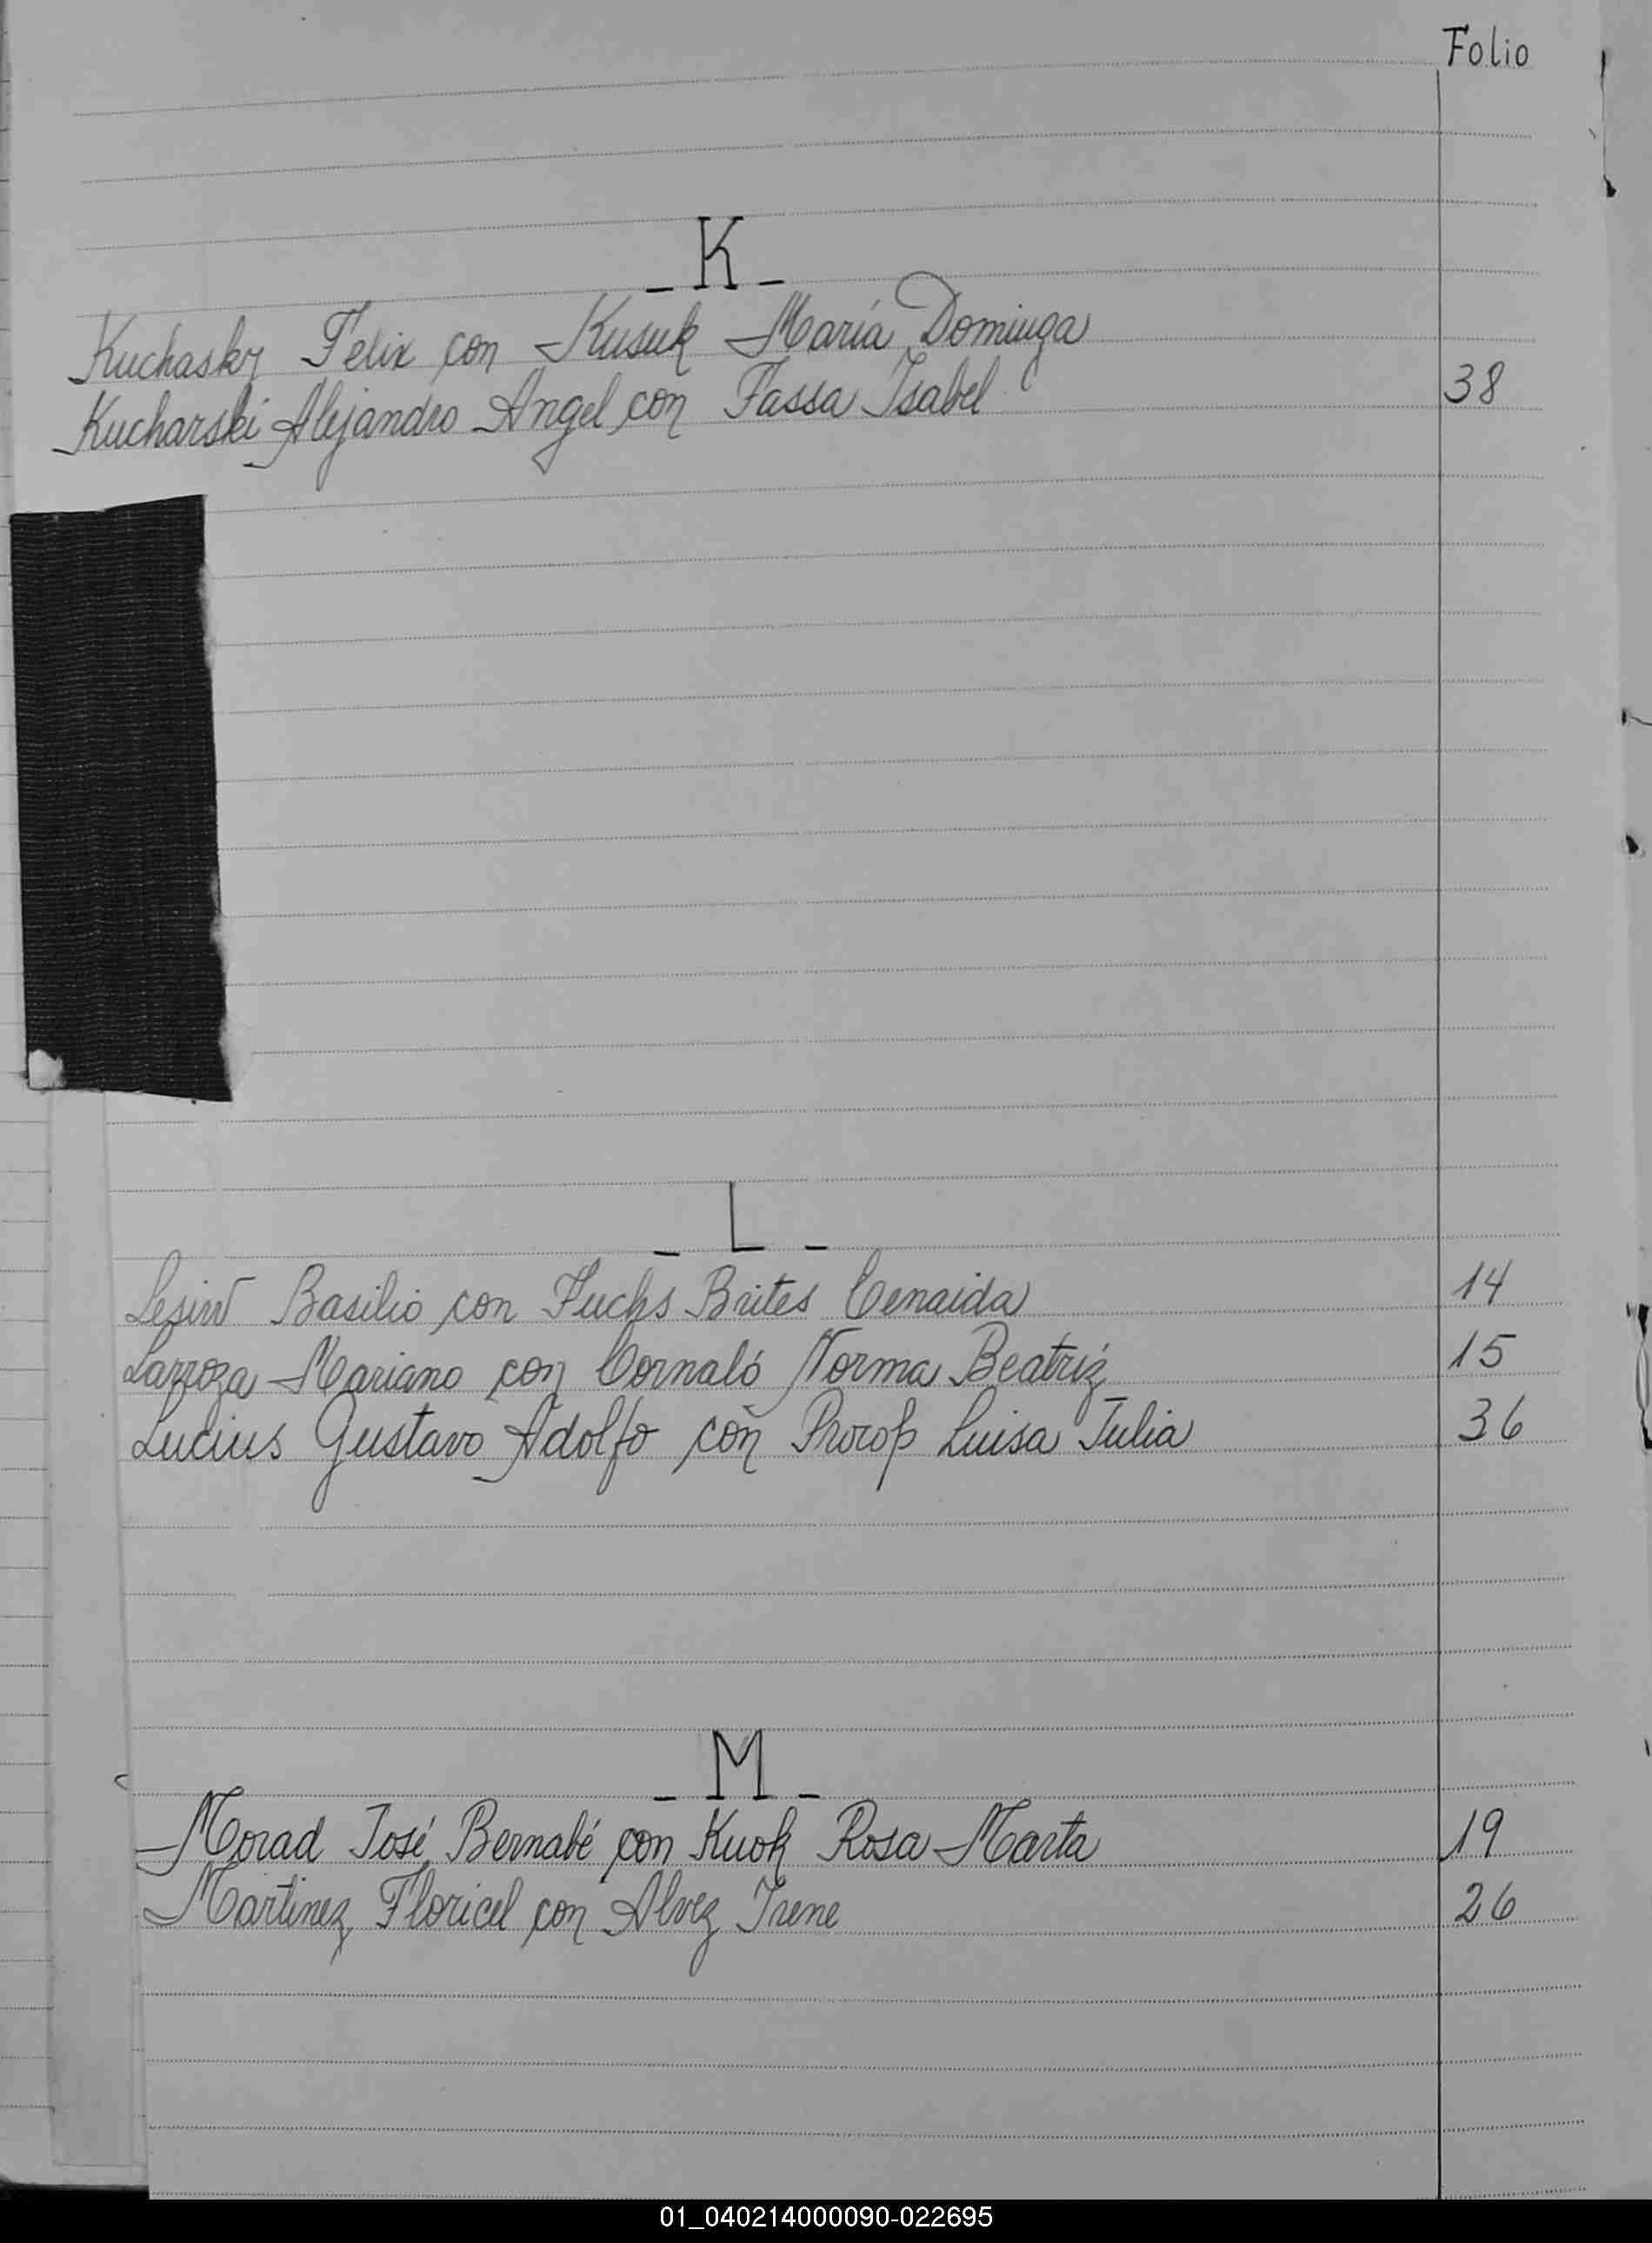 Folio
- K -
Kuchasky Felix con Kusuk María Dominga
Kucharski Alejandro Angel con Fassa Isabel 38
- L -
Lesiw Basilio con Fuchs Brites Cenaida 14
Larroza Mariano con Cornaló Norma Beatriz 15
Lucius Gustavo Adolfo con Procop Luisa Julia 36
- M -
Morad José Bernabé con Kuok Rosa Marta 19
Martinez Floricel con Alvez Irene 26
01_040214000090-022695